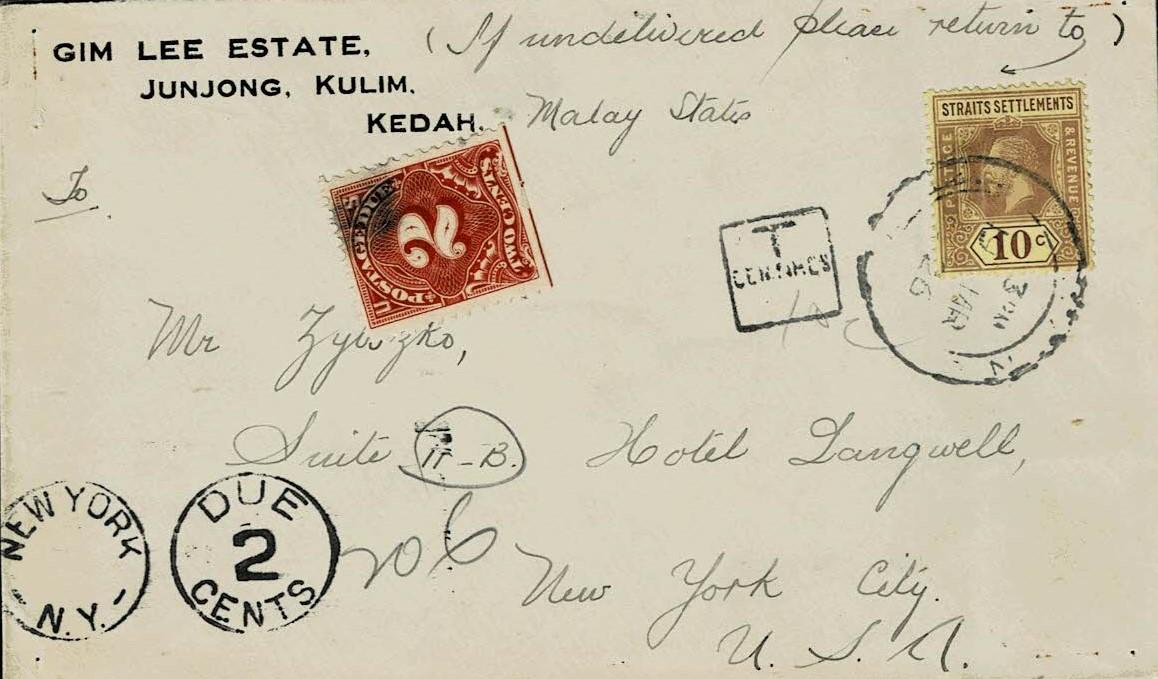 GIM LEE ESTATE, (If undelivered please return to)
JUNJONG, KULIM.
KEDAH. Malay States
STRAITS SETTLEMENTS
POSTAGE & REVENUE
10 c
To
POSTAGE DUE
2
TWO CENTS
T
CENTIMES
10 c
3 PM
MAR
26
Mr Zybyzko,
Suite 11-B. Hotel Langwell,
NEW YORK
N.Y.
DUE
2
CENTS
New York City.
U. S. A.